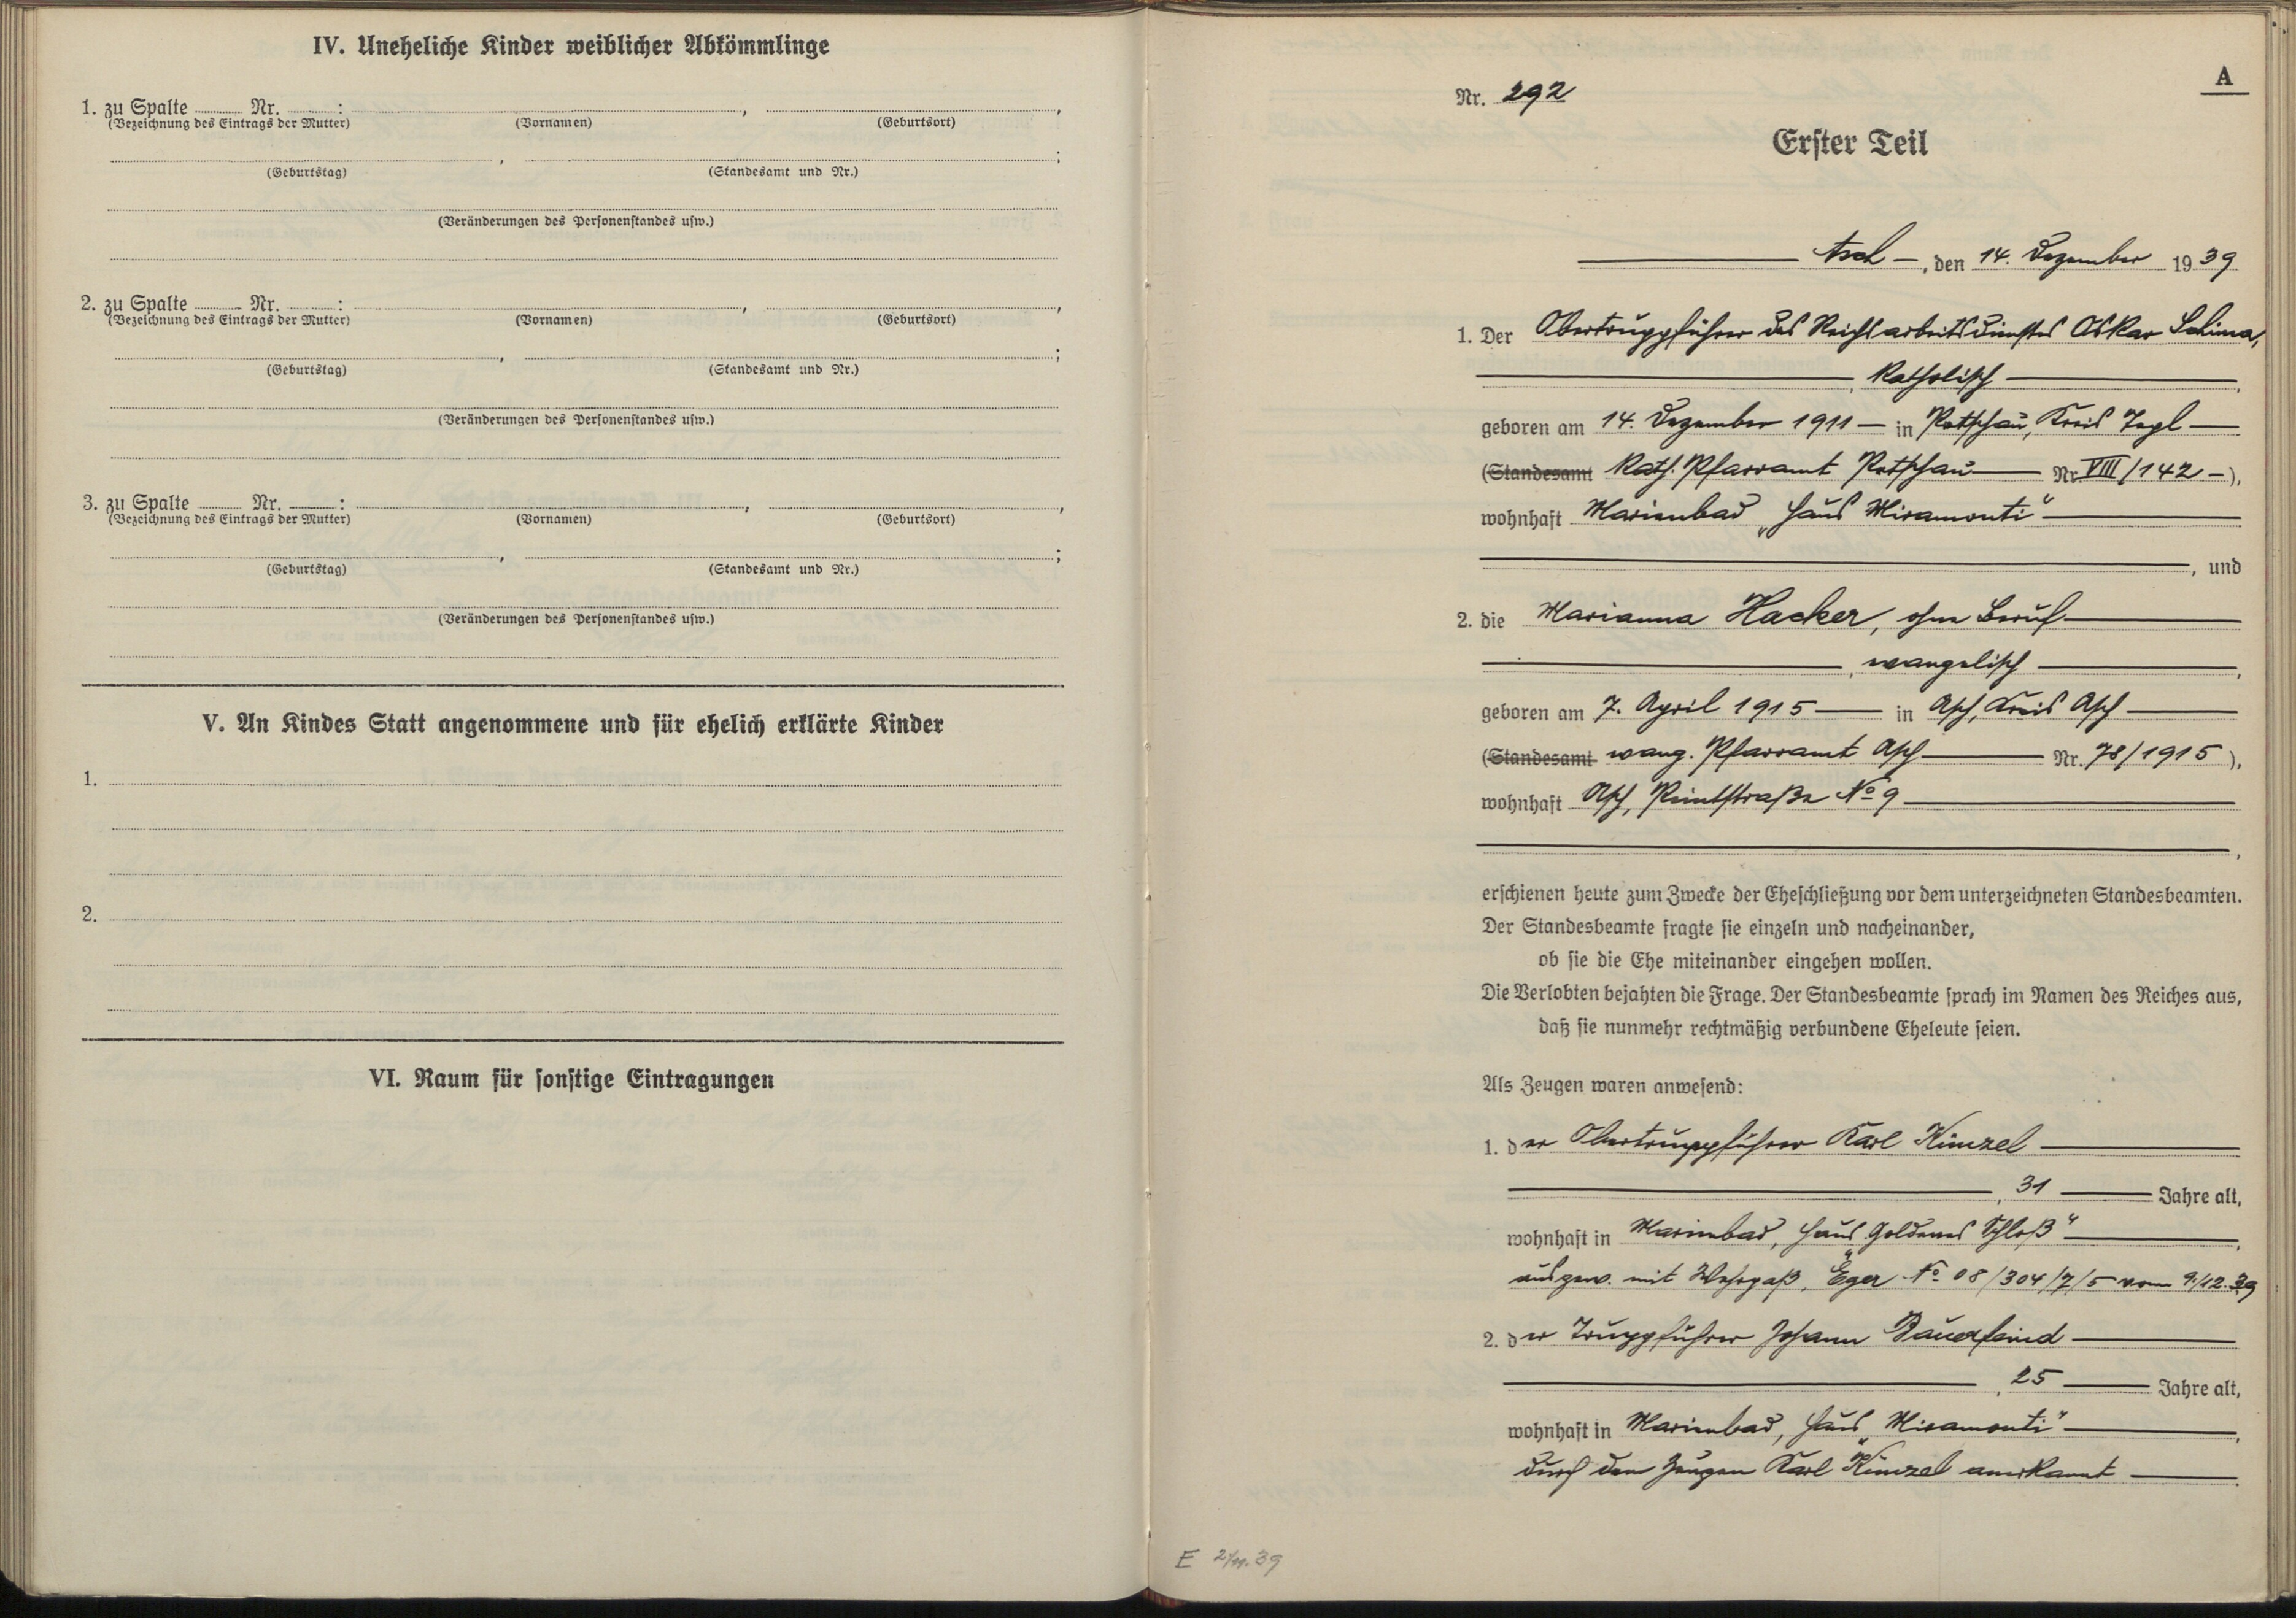 IV. Uneheliche Kinder weiblicher Abkömmlinge
1. zu Spalte ........ Nr. ........:
(Bezeichnung des Eintrags der Mutter) (Vornamen) (Geburtsort)
(Geburtstag) (Standesamt und Nr.)
(Veränderungen des Personenstandes usw.)
2. zu Spalte ........ Nr. ........:
(Bezeichnung des Eintrags der Mutter) (Vornamen) (Geburtsort)
(Geburtstag) (Standesamt und Nr.)
(Veränderungen des Personenstandes usw.)
3. zu Spalte ........ Nr. ........:
(Bezeichnung des Eintrags der Mutter) (Vornamen) (Geburtsort)
(Geburtstag) (Standesamt und Nr.)
(Veränderungen des Personenstandes usw.)
V. An Kindes Statt angenommene und für ehelich erklärte Kinder
1.
2.
VI. Raum für sonstige Eintragungen
A
Nr. 292
Erster Teil
Asch, den 14. Dezember 1939
1. Der Obertruppführer des Reichsarbeitsdienstes Oskar Schima,
, katholisch,
geboren am 14. Dezember 1911 in Rotschau, Kreis Tepl
(Standesamt Kath. Pfarramt Rotschau Nr. VIII/142),
wohnhaft Marienbad „Haus Miramonti"
, und
2. die Marianna Hacker, ohne Beruf
, evangelisch,
geboren am 7. April 1915 in Asch, Kreis Asch
(Standesamt evang. Pfarramt Asch Nr. 78/1915),
wohnhaft Asch, No 9
erschienen heute zum Zwecke der Eheschließung vor dem unterzeichneten Standesbeamten.
Der Standesbeamte fragte sie einzeln und nacheinander,
ob sie die Ehe miteinander eingehen wollen.
Die Verlobten bejahten die Frage. Der Standesbeamte sprach im Namen des Reiches aus,
daß sie nunmehr rechtmäßig verbundene Eheleute seien.
Als Zeugen waren anwesend:
1. der Obertruppführer Karl Künzel
, 31 Jahre alt,
wohnhaft in Marienbad, Haus „Goldenes Schloß",
ausgew. mit Wehrpaß, Eger No 08/304/7/5 vom 9./12.39
2. der Truppführer Johann Bauerfeind
, 25 Jahre alt,
wohnhaft in Marienbad, Haus „Miramonti",
durch den Zeugen Karl Künzel anerkannt